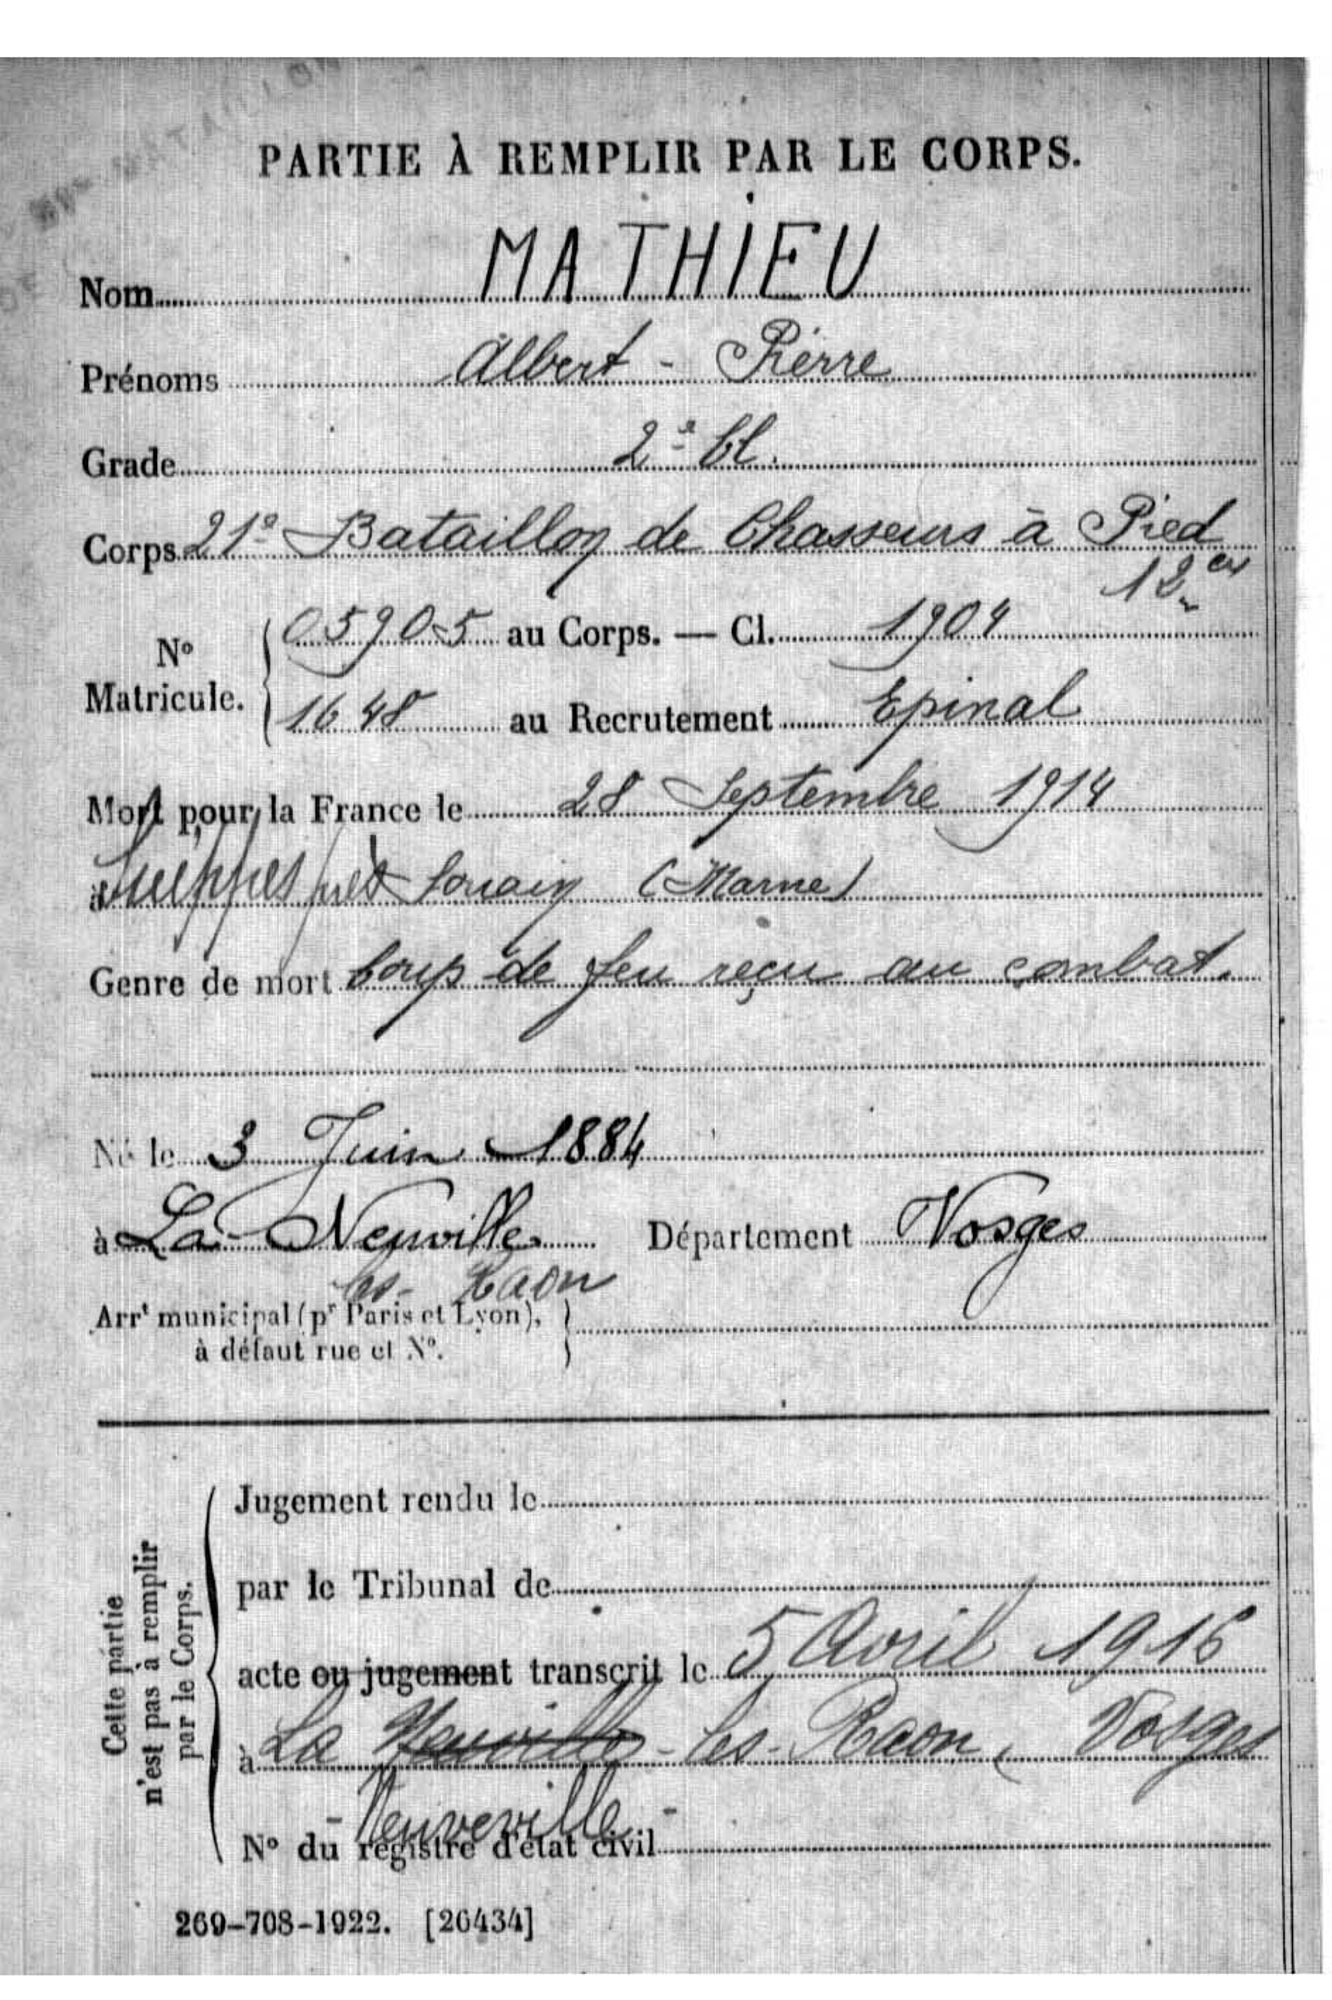 BATAILLON
DE
PARTIE À REMPLIR PAR LE CORPS.
Nom MATHIEU
Prénoms Albert - Pierre
Grade 2e Cl.
Corps 21e Bataillon de Chasseurs à Pied
12
N° Matricule. 05905 au Corps. — Cl. 1904
1648 au Recrutement Epinal
Mort pour la France le 28 Septembre 1914
à Sueppes près Souain (Marne)
Genre de mort Coup de feu reçu au combat.
Né le 3 Juin 1884
à La Neuville Département Vosges
les - Raon
Arrt municipal (pr Paris et Lyon),
à défaut rue et N°.
Cette partie
n'est pas à remplir
par le Corps.
Jugement rendu le
par le Tribunal de
acte ou jugement transcrit le 5 Avril 1916
à La Neuville - les - Raon, Vosges
- Neuveville -
N° du registre d'état civil
269-708-1922. [26434]